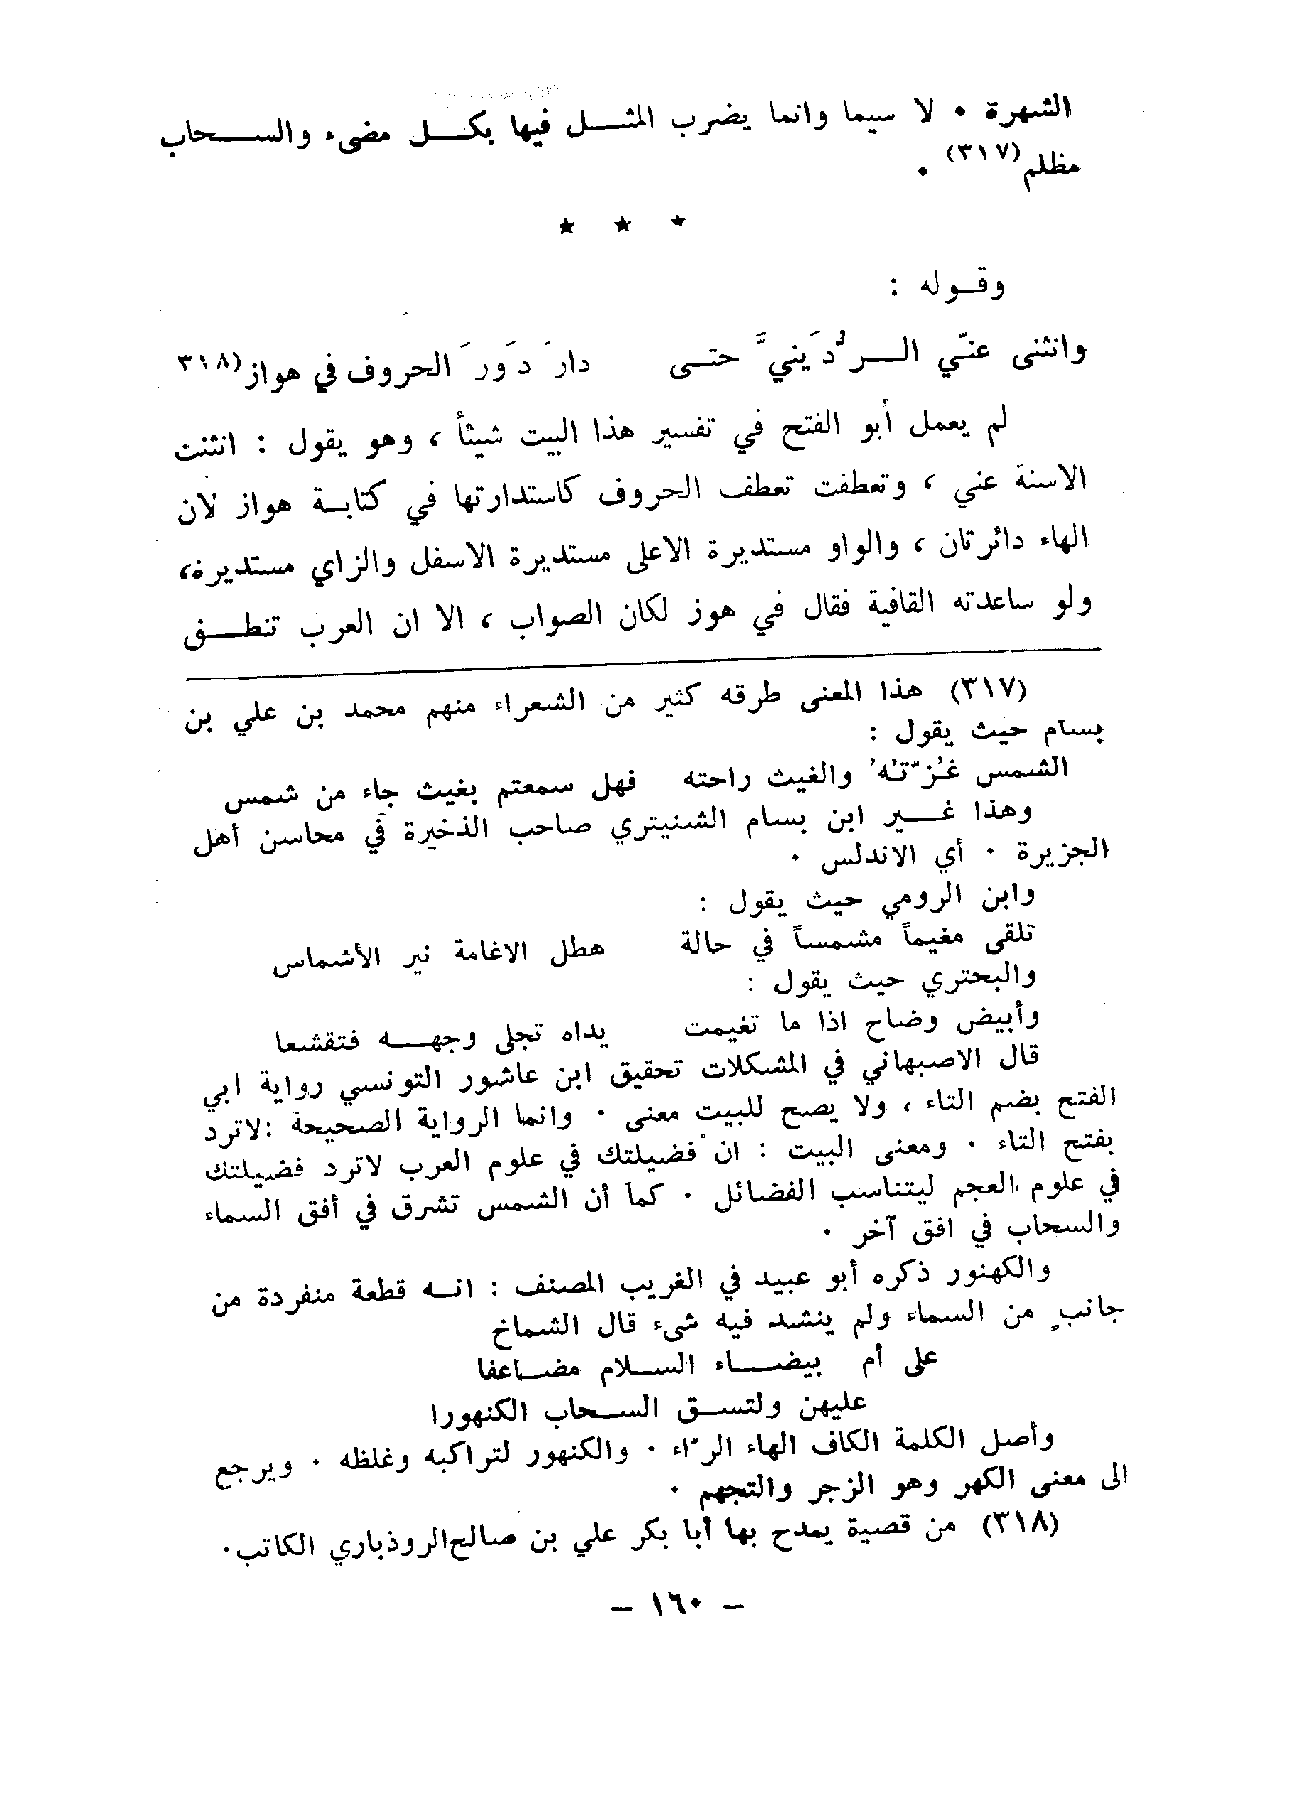 الشهرة ٠ لا سيما وانما يضرب المثـــل فيها بكـــل مضىء والســـحاب
مظلم(٣١٧) ٠
★ ★ ★
وقـوله :
وانثنى عنّي الـــرُّدَيْنيُّ حتـى دارَ دَورَ الحروف في هواز(٣١٨
لم يعمل أبو الفتح في تفسير هذا البيت شيئاً ، وهو يقول : انثنت
الاسنة عني ، وتعطفت تعطف الحروف كاستدارتها في كتابـة هواز لان
الهاء دائرتان ، والواو مستديرة الاعلى مستديرة الاسفل والزاي مستديرة،
ولو ساعدته القافية فقال في هوز لكان الصواب ، الا ان العرب تنطـــق
(٣١٧) هذا المعنى طرقه كثير من الشعراء منهم محمد بن علي بن
بسام حيث يقول :
الشمس غُرّتُهُ والغيث راحته فهل سمعتم بغيث جاء من شمس
وهذا غـــير ابن بسام الشنيتري صاحب الذخيرة في محاسن أهل
الجزيرة ٠ أي الاندلس ٠
وابن الرومي حيث يقول :
تلقى مغيماً مشمساً في حالة هطل الاغامة نير الأشماس
والبحتري حيث يقول :
وأبيض وضاح اذا ما تغيمت يداه تجلى وجهـــه فتقشعا
قال الاصبهاني في المشكلات تحقيق ابن عاشور التونسي رواية ابي
الفتح بضم التاء ، ولا يصح للبيت معنى ٠ وانما الرواية الصحيحة :لاترد
بفتح التاء ٠ ومعنى البيت : ان فضيلتك في علوم العرب لاترد فضيلتك
في علوم العجم ليتناسب الفضائل ٠ كما أن الشمس تشرق في أفق السماء
والسحاب في افق آخر ٠
والكهنور ذكره أبو عبيد في الغريب المصنف : انـه قطعة منفردة من
جانبٍ من السماء ولم ينشد فيه شىء قال الشماخ
على أم بيضـــاء الســلام مضـاعفا
عليهن ولتســق الســحاب الكنهورا
وأصل الكلمة الكاف الهاء الرّاء ٠ والكنهور لتراكبه وغلظه ٠ ويرجع
الى معنى الكهر وهو الزجر والتجهم ٠
(٣١٨) من قصية يمدح بها أبا بكر علي بن صالح الروذباري الكاتب٠
— ١٦٠ —